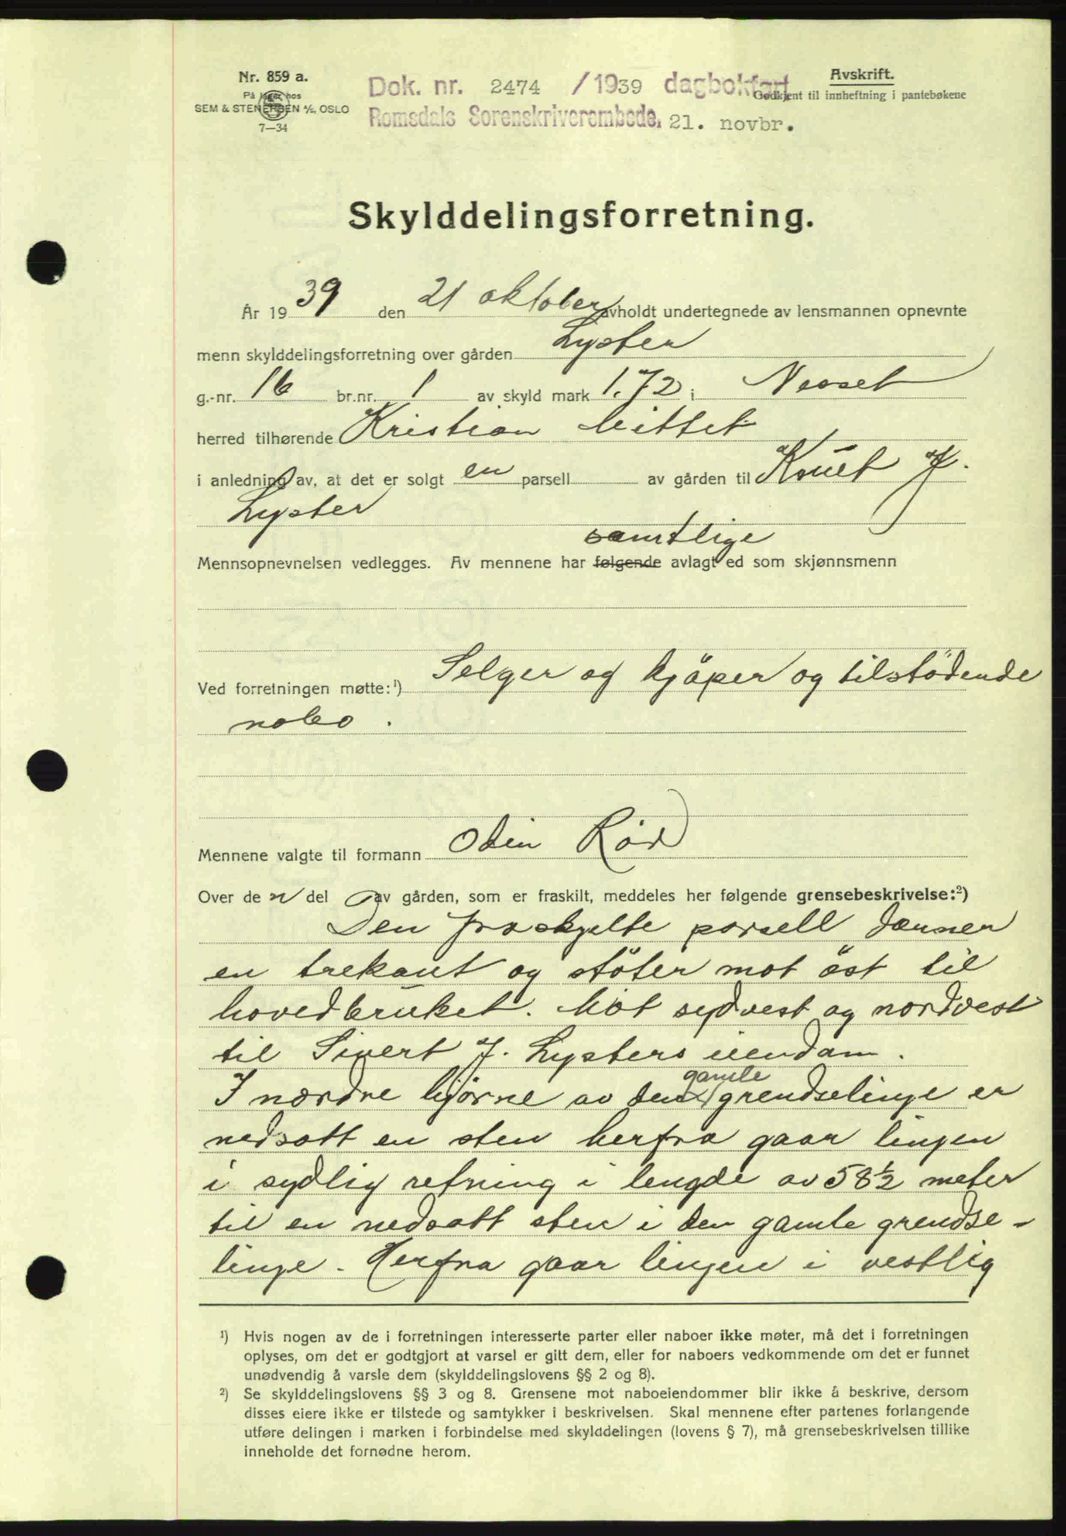 Nr. 859 a.
På lager hos
SEM & STENERSEN A/S, OSLO
7—34
Dok. nr. 2474 /1939 dagbokført
Romsdals Sorenskriverembede, 21. novbr.
Avskrift.
Godkjent til innheftning i pantebøkene
Skylddelingsforretning.
År 1939 den 21 oktober avholdt undertegnede av lensmannen opnevnte
menn skylddelingsforretning over gården Lyster
g.-nr. 16 br.nr. 1 av skyld mark 1.72 i Nesset
herred tilhørende Kristian Mittet
i anledning av, at det er solgt en parsell av gården til Knut J.
Lyster
samtlige
Mennsopnevnelsen vedlegges. Av mennene har følgende avlagt ed som skjønnsmenn
Ved forretningen møtte:¹) Selger og kjöper og tilstödende
nabo.
Mennene valgte til formann Odin Röd
Over de n del av gården, som er fraskilt, meddeles her følgende grensebeskrivelse:²)
Den fraskylte parsell danner
en trekant og stöter mot öst til
hovedbruket. Mot sydvest og nordvest
til Sivert J. Lysters eiendam.
gamle
I nordre hjørne av den grendselinje er
nedsatt en sten herfra gaar linjen
i sydlig retning i lengde av 58½ meter
til en nedsatt sten i den gamle grendse-
linje. Herfra gaar linjen i vestlig
¹) Hvis nogen av de i forretningen interesserte parter eller naboer ikke møter, må det i forretningen
oplyses, om det er godtgjort at varsel er gitt dem, eller for naboers vedkommende om det er funnet
unødvendig å varsle dem (skylddelingslovens §§ 2 og 8).
²) Se skylddelingslovens §§ 3 og 8. Grensene mot naboeiendommer blir ikke å beskrive, dersom
disses eiere ikke er tilstede og samtykker i beskrivelsen. Skal mennene efter partenes forlangende
utføre delingen i marken i forbindelse med skylddelingen (lovens § 7), må grensebeskrivelsen tillike
inneholde det fornødne herom.